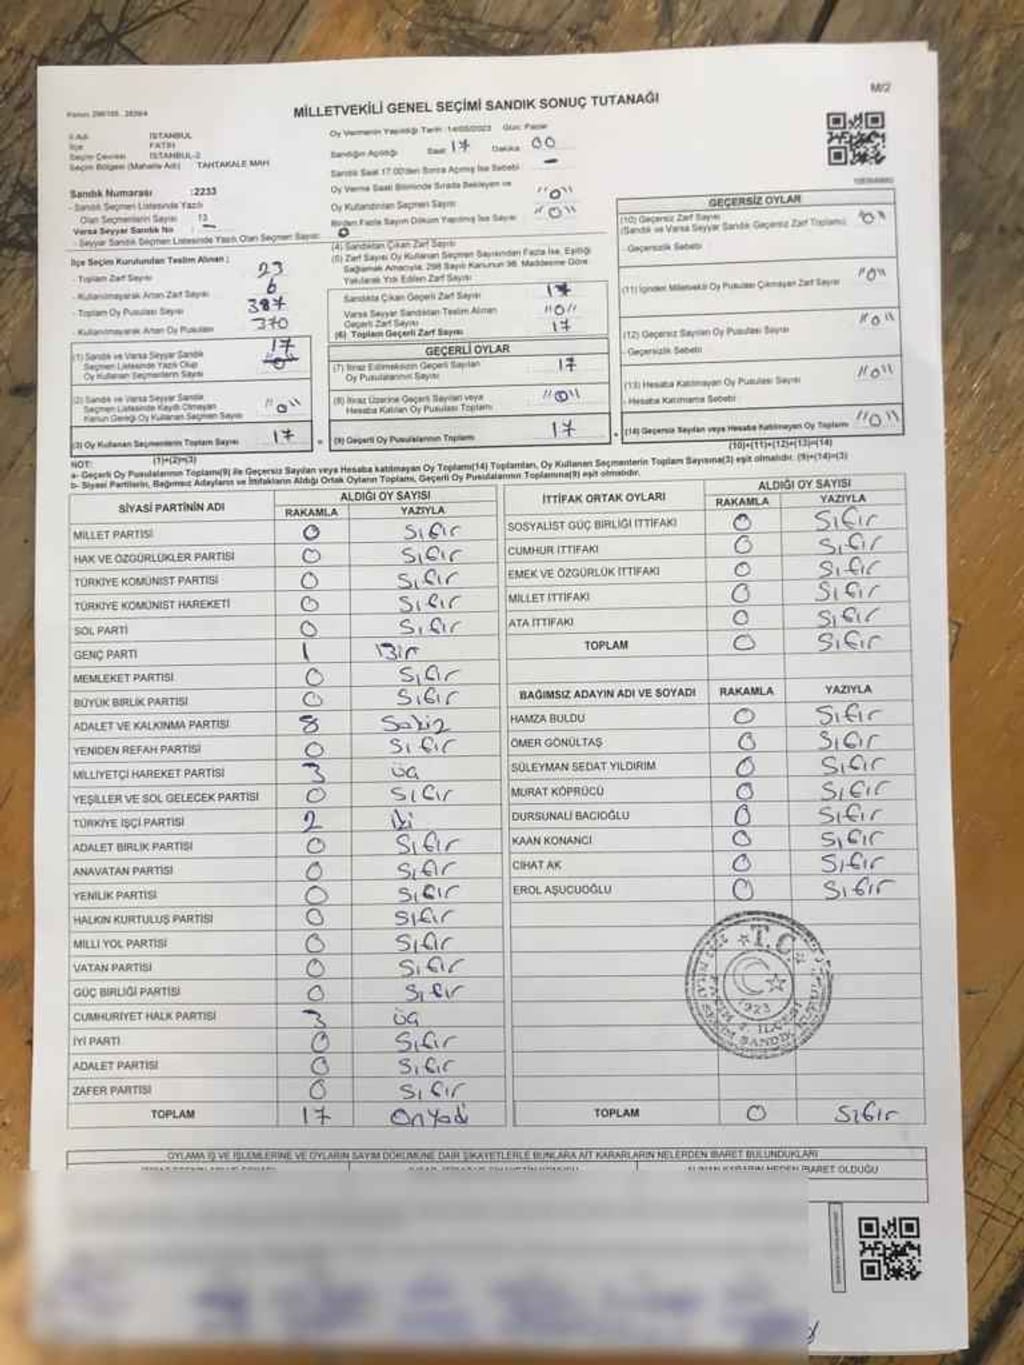 M/2
MİLLETVEKİLİ GENEL SEÇİMİ SANDIK SONUÇ TUTANAĞI
İl Adı İSTANBUL
İlçe FATİH
Seçim Çevresi İSTANBUL-2
Seçim Bölgesi (Mahalle Adı) TAHTAKALE MAH
Oy Vermenin Yapıldığı Tarih :14/05/2023 Gün: Pazar
Sandığın Açıldığı Saat 17 Dakika 00
Sandık Saat 17.00'den Sonra Açılmış İse Sebebi —
Oy Verme Saati Bitiminde Sırada Bekleyen ve
Oy Kullandırılan Seçmen Sayısı "0"
Birden Fazla Sayım Döküm Yapılmış İse Sayısı "0"
Sandık Numarası :2233
- Sandık Seçmen Listesinde Yazılı
Olan Seçmenlerin Sayısı 13
Varsa Seyyar Sandık No : —
- Seyyar Sandık Seçmen Listesinde Yazılı Olan Seçmen Sayısı: 0
İlçe Seçim Kurulundan Teslim Alınan ;
- Toplam Zarf Sayısı 23
- Kullanılmayarak Artan Zarf Sayısı 6
- Toplam Oy Pusulası Sayısı 387
- Kullanılmayarak Artan Oy Pusulası 370
(1) Sandık ve Varsa Seyyar Sandık
Seçmen Listesinde Yazılı Olup
Oy Kullanan Seçmenlerin Sayısı 17
(2) Sandık ve Varsa Seyyar Sandık
Seçmen Listesinde Kayıtlı Olmayan
Kanun Gereği Oy Kullanan Seçmen Sayısı "0"
(3) Oy Kullanan Seçmenlerin Toplam Sayısı 17
(1)+(2)=(3)
(4) Sandıktan Çıkan Zarf Sayısı
(5) Zarf Sayısı Oy Kullanan Seçmen Sayısından Fazla İse, Eşitliği
Sağlamak Amacıyla, 298 Sayılı Kanunun 98. Maddesine Göre
Yakılarak Yok Edilen Zarf Sayısı
Sandıkta Çıkan Geçerli Zarf Sayısı 17
Varsa Seyyar Sandıktan Teslim Alınan
Geçerli Zarf Sayısı "0"
(6) Toplam Geçerli Zarf Sayısı 17
GEÇERLİ OYLAR
(7) İtiraz Edilmeksizin Geçerli Sayılan
Oy Pusulalarının Sayısı 17
(8) İtiraz Üzerine Geçerli Sayılan veya
Hesaba Katılan Oy Pusulası Toplamı "0"
(9) Geçerli Oy Pusulalarının Toplamı 17
GEÇERSİZ OYLAR
(10) Geçersiz Zarf Sayısı
(Sandık ve Varsa Seyyar Sandık Geçersiz Zarf Toplamı) "0"
- Geçersizlik Sebebi
(11) İçinden Milletvekili Oy Pusulası Çıkmayan Zarf Sayısı "0"
(12) Geçersiz Sayılan Oy Pusulası Sayısı "0"
- Geçersizlik Sebebi
(13) Hesaba Katılmayan Oy Pusulası Sayısı "0"
- Hesaba Katılmama Sebebi
(14) Geçersiz Sayılan veya Hesaba Katılmayan Oy Toplamı "0"
(10)+(11)+(12)+(13)=(14)
NOT:
a- Geçerli Oy Pusulalarının Toplamı(9) ile Geçersiz Sayılan veya Hesaba katılmayan Oy Toplamı(14) Toplamları, Oy Kullanan Seçmenlerin Toplam Sayısına(3) eşit olmalıdır. (9)+(14)=(3)
b- Siyasi Partilerin, Bağımsız Adayların ve İttifakların Aldığı Ortak Oyların Toplamı, Geçerli Oy Pusulalarının Toplamına(9) eşit olmalıdır.
SİYASİ PARTİNİN ADI ALDIĞI OY SAYISI
RAKAMLA YAZIYLA
MİLLET PARTİSİ 0 Sıfır
HAK VE ÖZGÜRLÜKLER PARTİSİ 0 Sıfır
TÜRKİYE KOMÜNİST PARTİSİ 0 Sıfır
TÜRKİYE KOMÜNİST HAREKETİ 0 Sıfır
SOL PARTİ 0 Sıfır
GENÇ PARTİ 1 Bir
MEMLEKET PARTİSİ 0 Sıfır
BÜYÜK BİRLİK PARTİSİ 0 Sıfır
ADALET VE KALKINMA PARTİSİ 8 Sekiz
YENİDEN REFAH PARTİSİ 0 Sıfır
MİLLİYETÇİ HAREKET PARTİSİ 3 üç
YEŞİLLER VE SOL GELECEK PARTİSİ 0 Sıfır
TÜRKİYE İŞÇİ PARTİSİ 2 iki
ADALET BİRLİK PARTİSİ 0 Sıfır
ANAVATAN PARTİSİ 0 Sıfır
YENİLİK PARTİSİ 0 Sıfır
HALKIN KURTULUŞ PARTİSİ 0 Sıfır
MİLLİ YOL PARTİSİ 0 Sıfır
VATAN PARTİSİ 0 Sıfır
GÜÇ BİRLİĞİ PARTİSİ 0 Sıfır
CUMHURİYET HALK PARTİSİ 3 üç
İYİ PARTİ 0 Sıfır
ADALET PARTİSİ 0 Sıfır
ZAFER PARTİSİ 0 Sıfır
TOPLAM 17 Onyedi
İTTİFAK ORTAK OYLARI ALDIĞI OY SAYISI
RAKAMLA YAZIYLA
SOSYALİST GÜÇ BİRLİĞİ İTTİFAKI 0 Sıfır
CUMHUR İTTİFAKI 0 Sıfır
EMEK VE ÖZGÜRLÜK İTTİFAKI 0 Sıfır
MİLLET İTTİFAKI 0 Sıfır
ATA İTTİFAKI 0 Sıfır
TOPLAM 0 Sıfır
BAĞIMSIZ ADAYIN ADI VE SOYADI RAKAMLA YAZIYLA
HAMZA BULDU 0 Sıfır
ÖMER GÖNÜLTAŞ 0 Sıfır
SÜLEYMAN SEDAT YILDIRIM 0 Sıfır
MURAT KÖPRÜCÜ 0 Sıfır
DURSUNALİ BACIOĞLU 0 Sıfır
KAAN KONANCI 0 Sıfır
CİHAT AK 0 Sıfır
EROL AŞUCUOĞLU 0 Sıfır
T.C.
1923
TOPLAM 0 Sıfır
OYLAMA İŞ VE İŞLEMLERİNE VE OYLARIN SAYIM DÖKÜMÜNE DAİR ŞİKAYETLERLE BUNLARA AİT KARARLARIN NELERDEN İBARET BULUNDUKLARI
ALINAN KARARIN NEDEN İBARET OLDUĞU